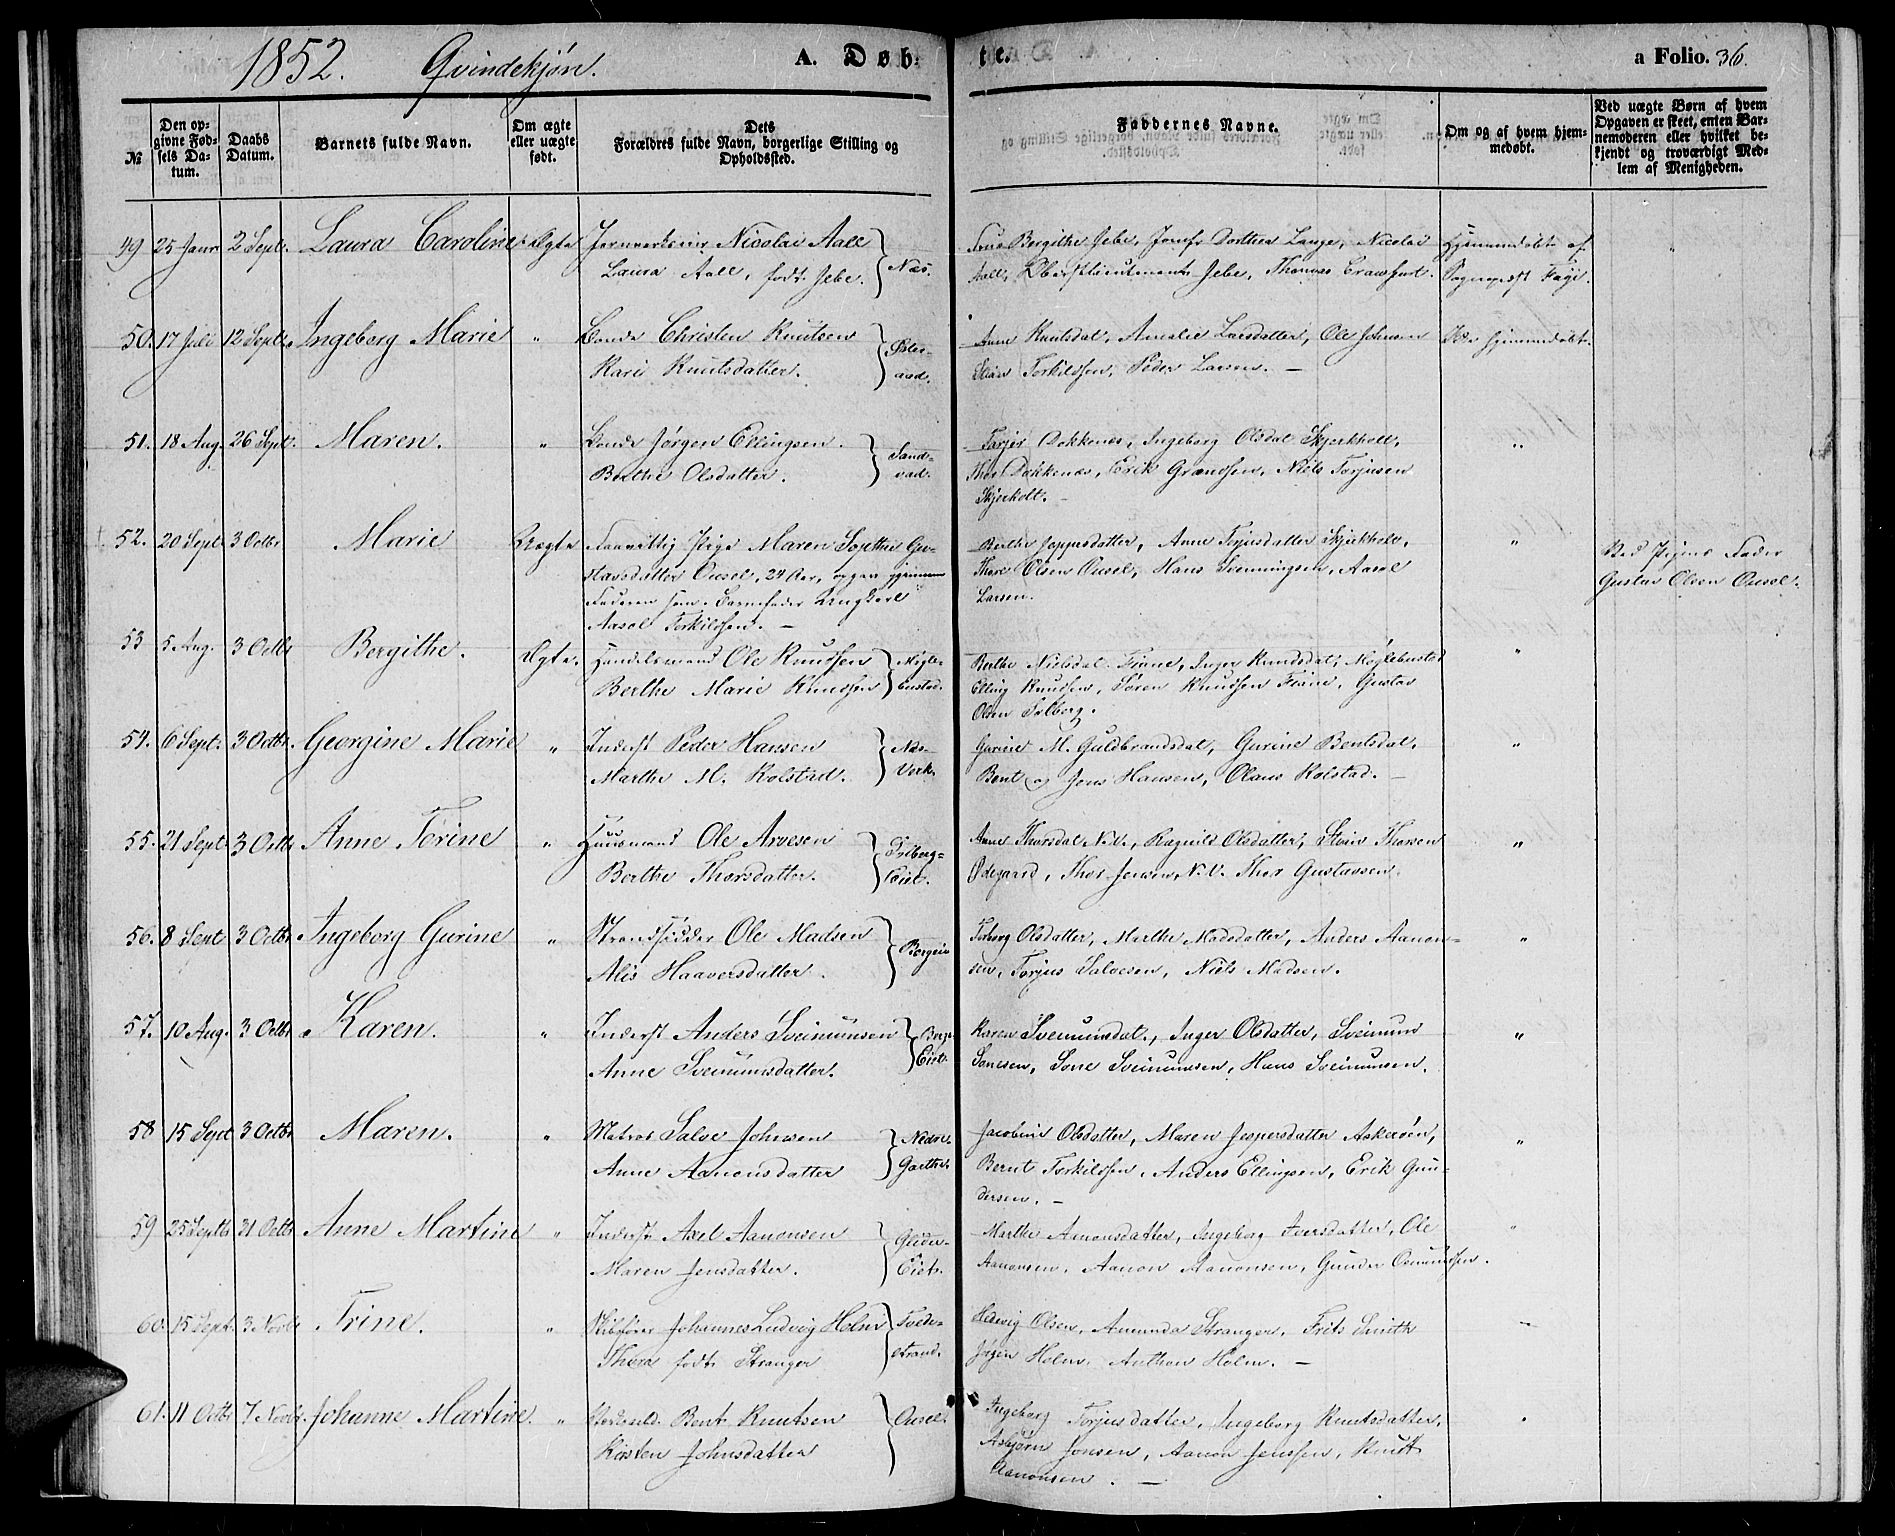 1852. Qvindekjøn. A. Døb- te. a Folio. 36.
№
Den opgivne Fødsels Datum.
Daabs Datum.
Barnets fulde Navn.
Om ægte eller uægte født.
Dets Forældres fulde Navn, borgerlige Stilling og Opholdssted.
Faddernes Navne.
Om og af hvem hjemmedøbt.
Ved uægte Børn af hvem Opgaven er skeet, enten Barnemoderen eller hvilket bekjendt og troværdigt Medlem af Menigheden.
49 25 Janr 2 Sept. Laura Caroline Ægte Jernverkseier Nicolai Aall
Laura Aall, født Jebe. Næs.
Frue Bergithe Jebe, Jomfr Dorthea Lange, Nicolai
Aall, Oberstlieutenant Jebe, Thomas Crawfurt.
Hjemmedøbt af
Sognepræst Faye.
50. 17 Juli 12 Septb. Ingeborg Marie " Bonde Christen Knutsen
Kari Knutsdatter.
Anne Knutsdat, Amalie Larsdatter, Ole Johnsen
Torkildsen, Peder Larsen. —
Ikke hjemmedøbt.
51. 18 Aug. 26 Sept. Maren. " Bonde Jørgen Ellingsen.
Berthe Olsdatter. Sandvad.
Tarjer Dokkenæs, Ingeborg Olsdat Skjerkholt,
Thor Dokkenæs, Erik Grændsen, Niels Torjusen
Skjerholt. —
"
52. 20 Sept 3 Octbr Marie Uægte Vanvittig Pige Maren Sopthie Gustavsdatter Ousel, 24 Aar, opgav gjennem
Faderen som Barnefader Ungkarl
Aasol Torkildsen. —
Berthe Joppesdatter, Anne Torjusdatter Skjerkholt,
Thore Olsen Ousel, Hans Svenningsen, Aasol
Larsen.
"
Ved Pigens Fader
Gustav Olsen Ousel.
53 5 Aug. 3 Octbr Bergithe. Ægte. Handelsmand Ole Knudsen
Berthe Marie Knudsen Møglebustad.
Berthe Nielsdat. Fiane, Inger Knudsdat, Møglebustad
Elling Knudsen, Søren Knudsen Fiane, Gustav
Olsen Solberg.
"
54. 6 Sept. 3 Octbr. Georgine Marie " Inderst Peder Hansen
Marthe M. Rolstad. Næs-Verk.
Gurine M. Guldbrandsdat, Gurine Bentsdat.
Bent o Jens Hansen, Olaus Rolstad. —
"
55. 21 Sept 3 Octb Anne Torine " Huusmand Ole Arvesen
Berthe Thorsdatter. Solberg-Eiet.
Anne Thorsdat. N.V., Ragnild Olsdatter, Stein Thorsen
Ødegaard, Thor Jensen, N.V. Thor Gustavsen.
"
56. 8 Sept 3 Octbr Ingeborg Gurine " Strandsidder Ole Madsen
Alis Haaversdatter.
Torborg Olsdatter, Marthe Madsdatter, Anders Aanonsen, Torjus Salvesen, Niels Madsen.
"
57. 10 Aug. 3 Octbr. Karen. " Inderst Anders Sveinunsen
Anne Sveinunsdatter.
Karen Sveinunsdat., Inger Olsdatter, Sveinun
Sonesen, Sone Sveinunsen, Hans Sveinunsen.
"
58 15 Sept 3 Octbr Maren. " Matros Salve Johnsen
Anne Aanonsdatter Nedre Garthe.
Jacobine Olsdatter, Maren Jespersdatter Askerøen,
Bernt Torkildsen, Anders Ellingsen, Erik Gundersen. —
"
59 25 Septb 31 Octb Anne Martine " Inderst Axel Aanonsen
Maren Jensdatter.
Marthe Aanonsdatter, Ingeborg Iversdatter, Ole
Aanonsen, Aanon Aanonsen, Gunder Oemundsen.
"
60. 15 Sept. 3 Novbr Trine. " Skibfører Johannes Ludvig Holm
Thora født Stranger Tvedestrand.
Hedvig Olsen, Amunda Stranger, Frits Smith
Jørgen Holm, Anthon Holm. —
"
61. 11 Octbr 7 Novbr. Johanne Martine. " Bent Knutsen
Kirsten Johnsdatter Ousel.
Ingeborg Torjusdatter, Ingeborg Knutsdatter,
Asbjørn Jonsen, Aanon Jensen, Knut
Aanonsen. —